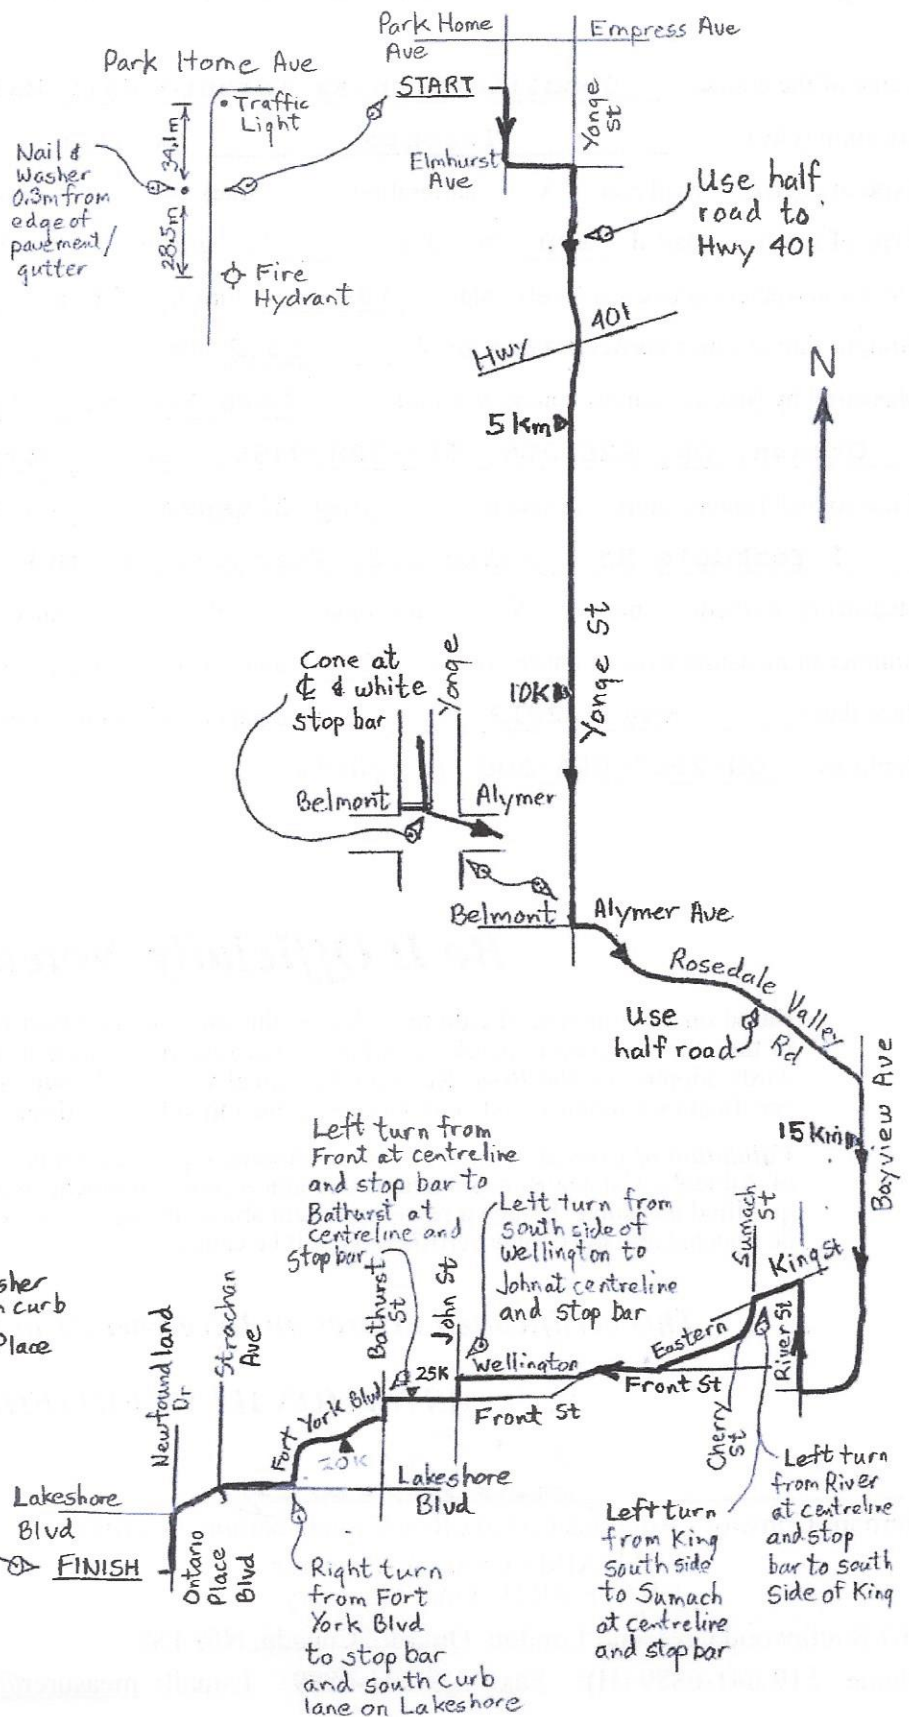 Park Home
Ave
Empress Ave
Park Home Ave
START
Traffic
Light
34.1m
28.5m
Nail &
Washer
0.3m from
edge of
pavement/
gutter
Fire
Hydrant
Elmhurst
Ave
Yonge
St
Use half
road to
Hwy 401
Hwy 401
N
5 Km
Yonge St
10K
Cone at
℄ & white
stop bar
Yonge
Belmont
Alymer
Belmont
Alymer Ave
Rosedale Valley
Rd
Use
half road
15Km
Bayview Ave
Left turn from
Front at centreline
and stop bar to
Bathurst at
centreline and
stop bar
Left turn from
south side of
Wellington to
John at centreline
and stop bar
Sumach
St
King St
River St
Eastern
Front St
Cherry
St
Wellington
Front St
John St
Bathurst
St
25K
Fort York Blvd
20K
Strachan
Ave
Newfoundland
Dr
sher
curb
Place
Lakeshore
Blvd
Lakeshore
Blvd
FINISH
Ontario
Place
Blvd
Right turn
from Fort
York Blvd
to stop bar
and south curb
lane on Lakeshore
Left turn
from King
South side
to Sumach
at centreline
and stop bar
Left turn
from River
at centreline
and stop
bar to south
Side of King